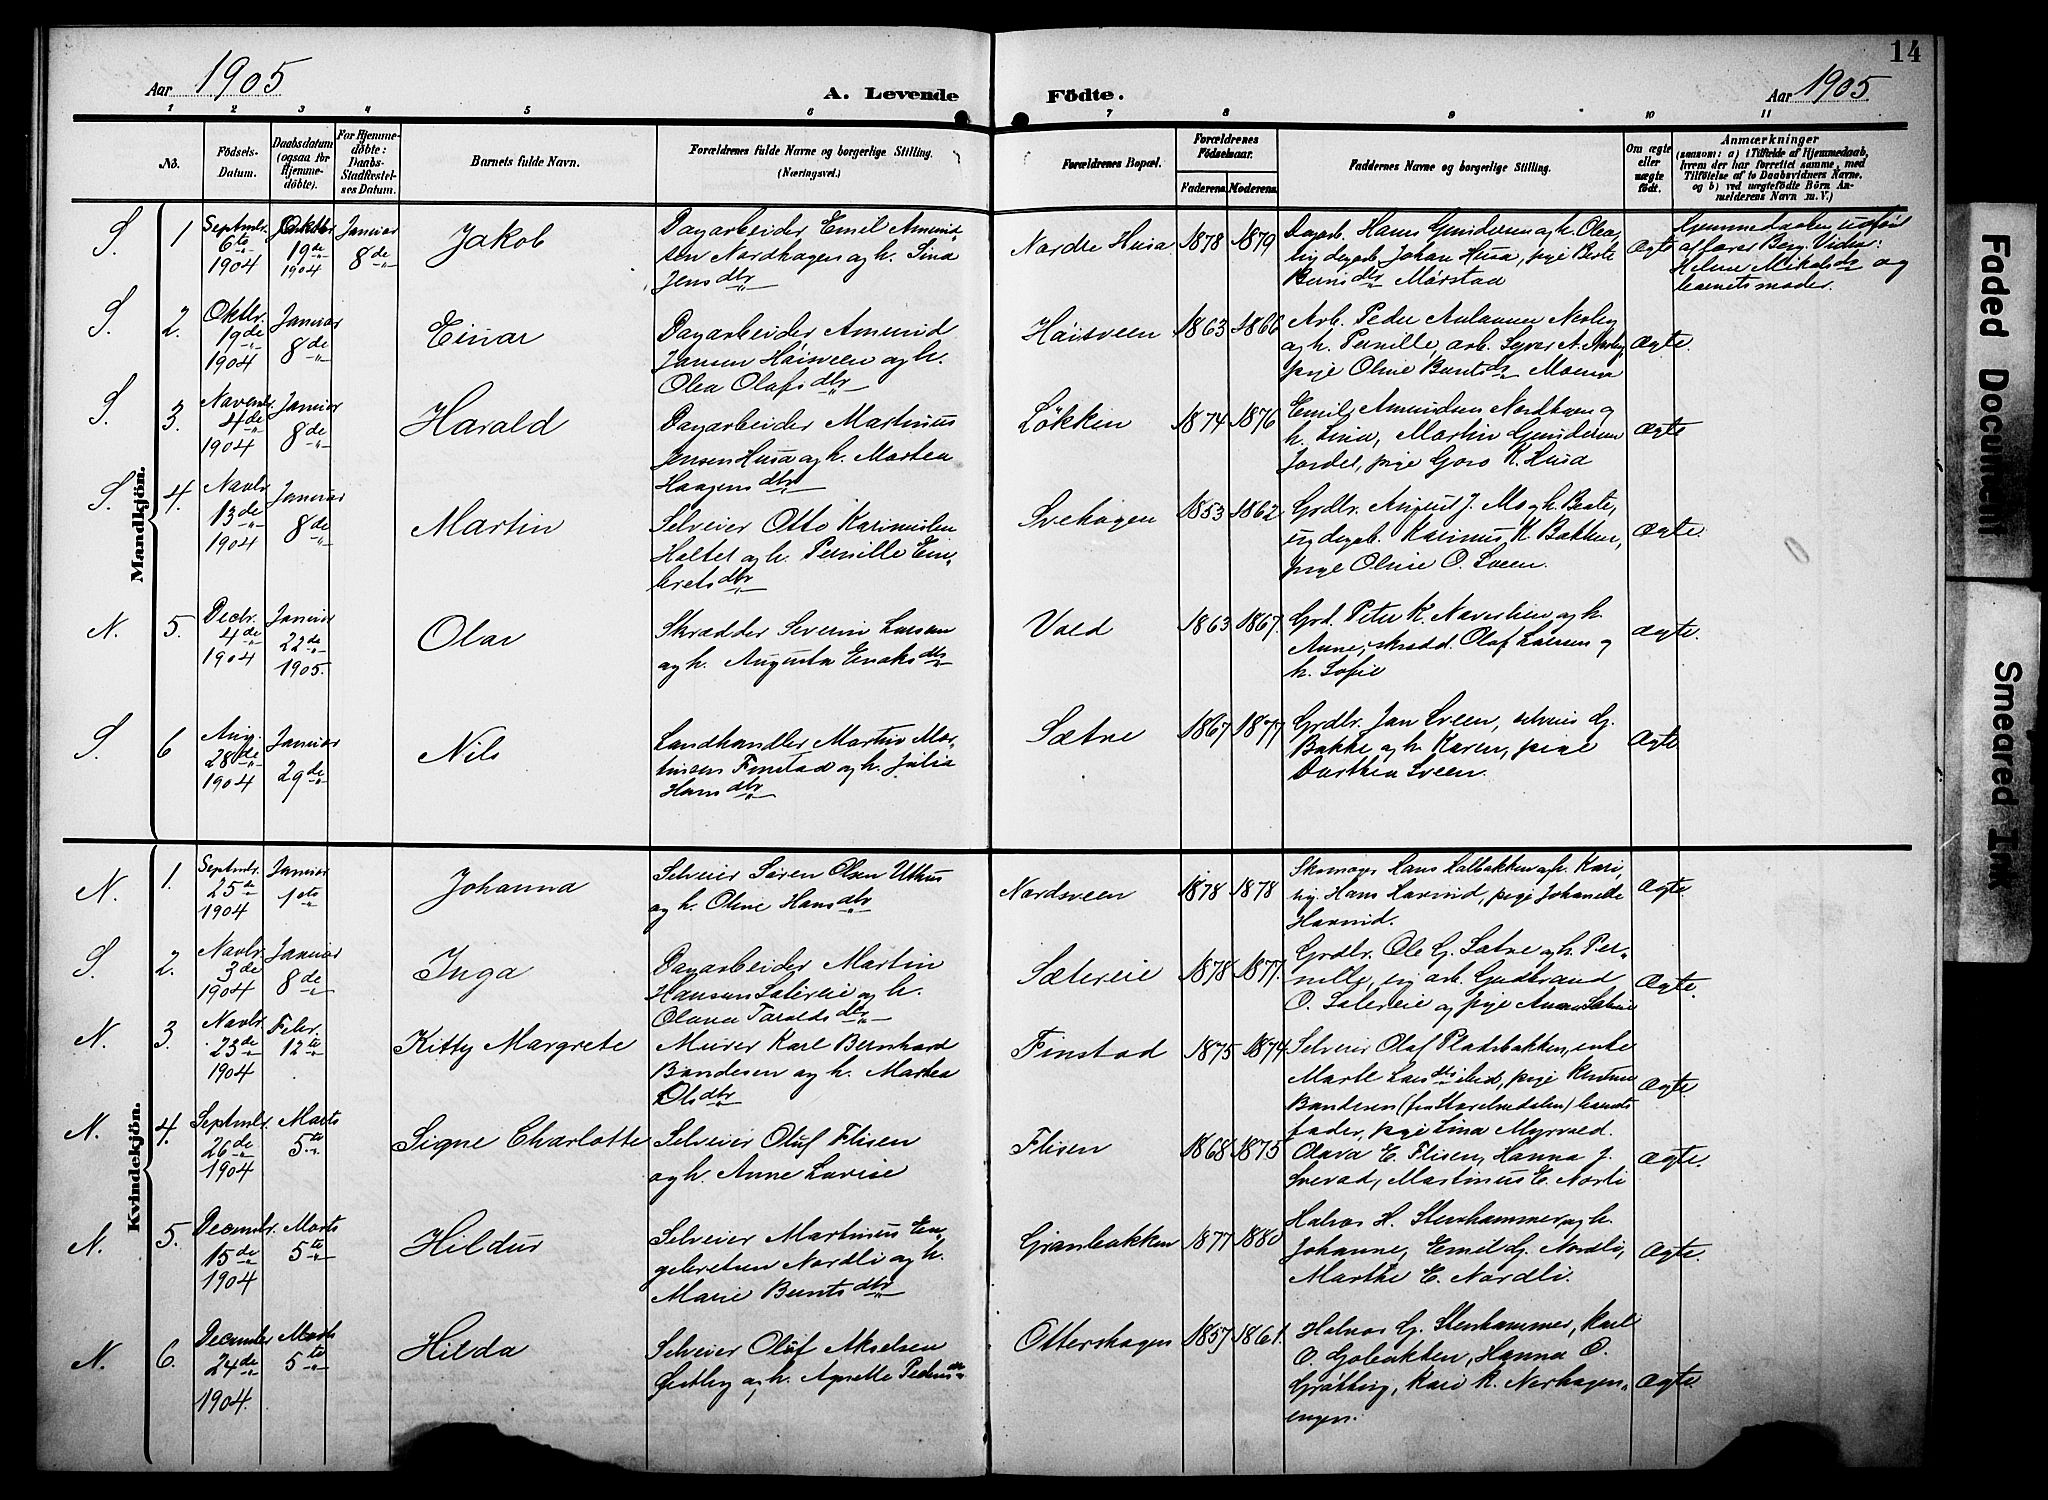 14
Aar 1905
A. Levende
Fødte.
Aar 1905
1 2 3 4 5 6 7 8 9 10 11
No.
Fødsels-
Datum.
Daabsdatum
(ogsaa for
Hjemme-
døbte).
For Hjemme-
døbte:
Daabs-
Stadfæstel-
ses Datum.
Barnets fulde Navn.
Forældrenes fulde Navne og borgerlige Stilling.
(Næringsvei.)
Forældrenes Bopæl.
Forældrenes
Fødselsaar.
Faderens. Moderens.
Faddernes Navne og borgerlige Stilling.
Om ægte
eller
uægte
født.
Anmærkninger
(saasom: a) i Tilfælde af Hjemmedaab,
hvem der har forrettet samme, med
Tilføielse af to Daabsvidners Navne.
og b) ved uægtefødte Børn An-
melderens Navn m. V.)
Mandkjøn.
S. 1 Septmbr. 6te 1904
19de 1904
Januar 8de
Jakob
Dagarbeider Emil Amund-
sen Nordhagen og h. Lina
Jensdtr
Nordre Husa 1878 1879
Dagarb. Hans Gundersen og h. Olea,
ung dagarb. Johan Husa, pige Berte
Berntsdtr Mørstad
Ægte
Hjemmedaaben udført
af farer Berg. Vidner:
Helene Mikelsdtr og
barnets moder.
S. 2. Oktbr. 19de 1904
Januar 8de
Einar
Dagarbeider Amund
Jansen Høisveen og h.
Olea Olafsdtr
Høisveen 1863 1866
og h. Pernille, arb. Syver A. Nørby
pige Oline Berntsdtr Moena
Ægte.
S. 3. Novembr. 4de 1904
Januar 8de
Harald
Dagarbeider Martinus
Jensen Husa og h. Martea
Haagensdtr
Løkken 1874 1876
Emil Amundsen Nordhagen og
h. Lina, Martin Gundersen
Jordet, pige Goro K. Husa
Ægte
S. 4. Novbr. 13de 1904
Januar 8de
Martin
Selveier Otto Karinusen
Haltet og h. Pernille Em-
bretsdtr
Svehagen 1853 1862
Grdbr. August J. Mo og h. Beate,
ung dagarb. Karinus K. Bakken,
pige Oline O. Sveen.
Ægte.
N. 5. Decbr. 4de 1904
Januar 22de 1905.
Olav
Skrædder Severin Larsen
og h. Augusta Enoksdtr
Vold 1863 1867.
Grd. Peter K. Naverlien og h.
Anne, skrædd. Olaf Larsen og
h. Sofie
Ægte.
S. 6 Aug. 28de 1904
Januar 29de
Nils
Landhandler Martin Mar-
tinsen Finstad og h. Julia
Hansdtr
Sætre 1867 1877
Grdbr. Jan Sveen, selveier G.
Bakke og h. Karen, pige
Dorthea Sveen.
Ægte
Kvindekjøn.
N. 1. Septmbr. 25de 1904
Januar 1ste
Johanna
Selveier Søren Olsen Uthus
og h. Oline Hansdtr
Nordsveen 1878 1878
Skomager Hans Halbakken og h. Kari,
ung. Hans Havnid, pige Johanette
Havnid.
Ægte.
S. 2. Novbr. 3de 1904
Januar 8de
Inga
Dagarbeider Martin
Hansen Sætereie og h.
Olava Taraldsdtr
Sætereie 1878 1877.
Grdbr. Ole G. Sætre og h. Per-
nille, ug arb. Gudbrand
O. Sætereie og pige Anna Sætre
Ægte.
N. 3. Novbr. 23de 1904
Febr. 12te
Kitty Margrete
Murer Karl Bernhard
Bandesen og h. Martea
Olsdtr
Finstad 1875 1874
Selveier Olaf Pladsbakken, enke
Bandesen (fra Storelvedalen) barnets
fader, pige Lina Myrvold.
Ægte
N. 4. Septmbr. 26de 1904
Marts 5te
Signe Charlotte
Selveier Oluf Flisen
og h. Anne Lovise
Flisen 1868 1875
Olava E. Flisen, Hanna J.
Sverad, Martinus E. Norli
Ægte.
N. 5. Decembr. 15de 1904
Marts 5te
Hildur
Selveier Martinus En-
gebretsen Nordli og h.
Marie Berntsdtr
Granbakken 1877 1880
Halvor H. Stenhammer og h.
Johanne, Emil G. Nordli,
Marthe E. Nordli.
Ægte.
N. 6. December 24de 1904.
Marts 5te
Hilda
Selveier Oluf Akselsen
Østby og h. Agnette Pedersdtr
Ottershagen 1857 1861.
Halvor G. Stenhammer, Karl
O. Gobakken, Hanna O.
Grøtting, Kari K. Norhagen-
engen.
Ægte.
Faded Document
Smeared Ink